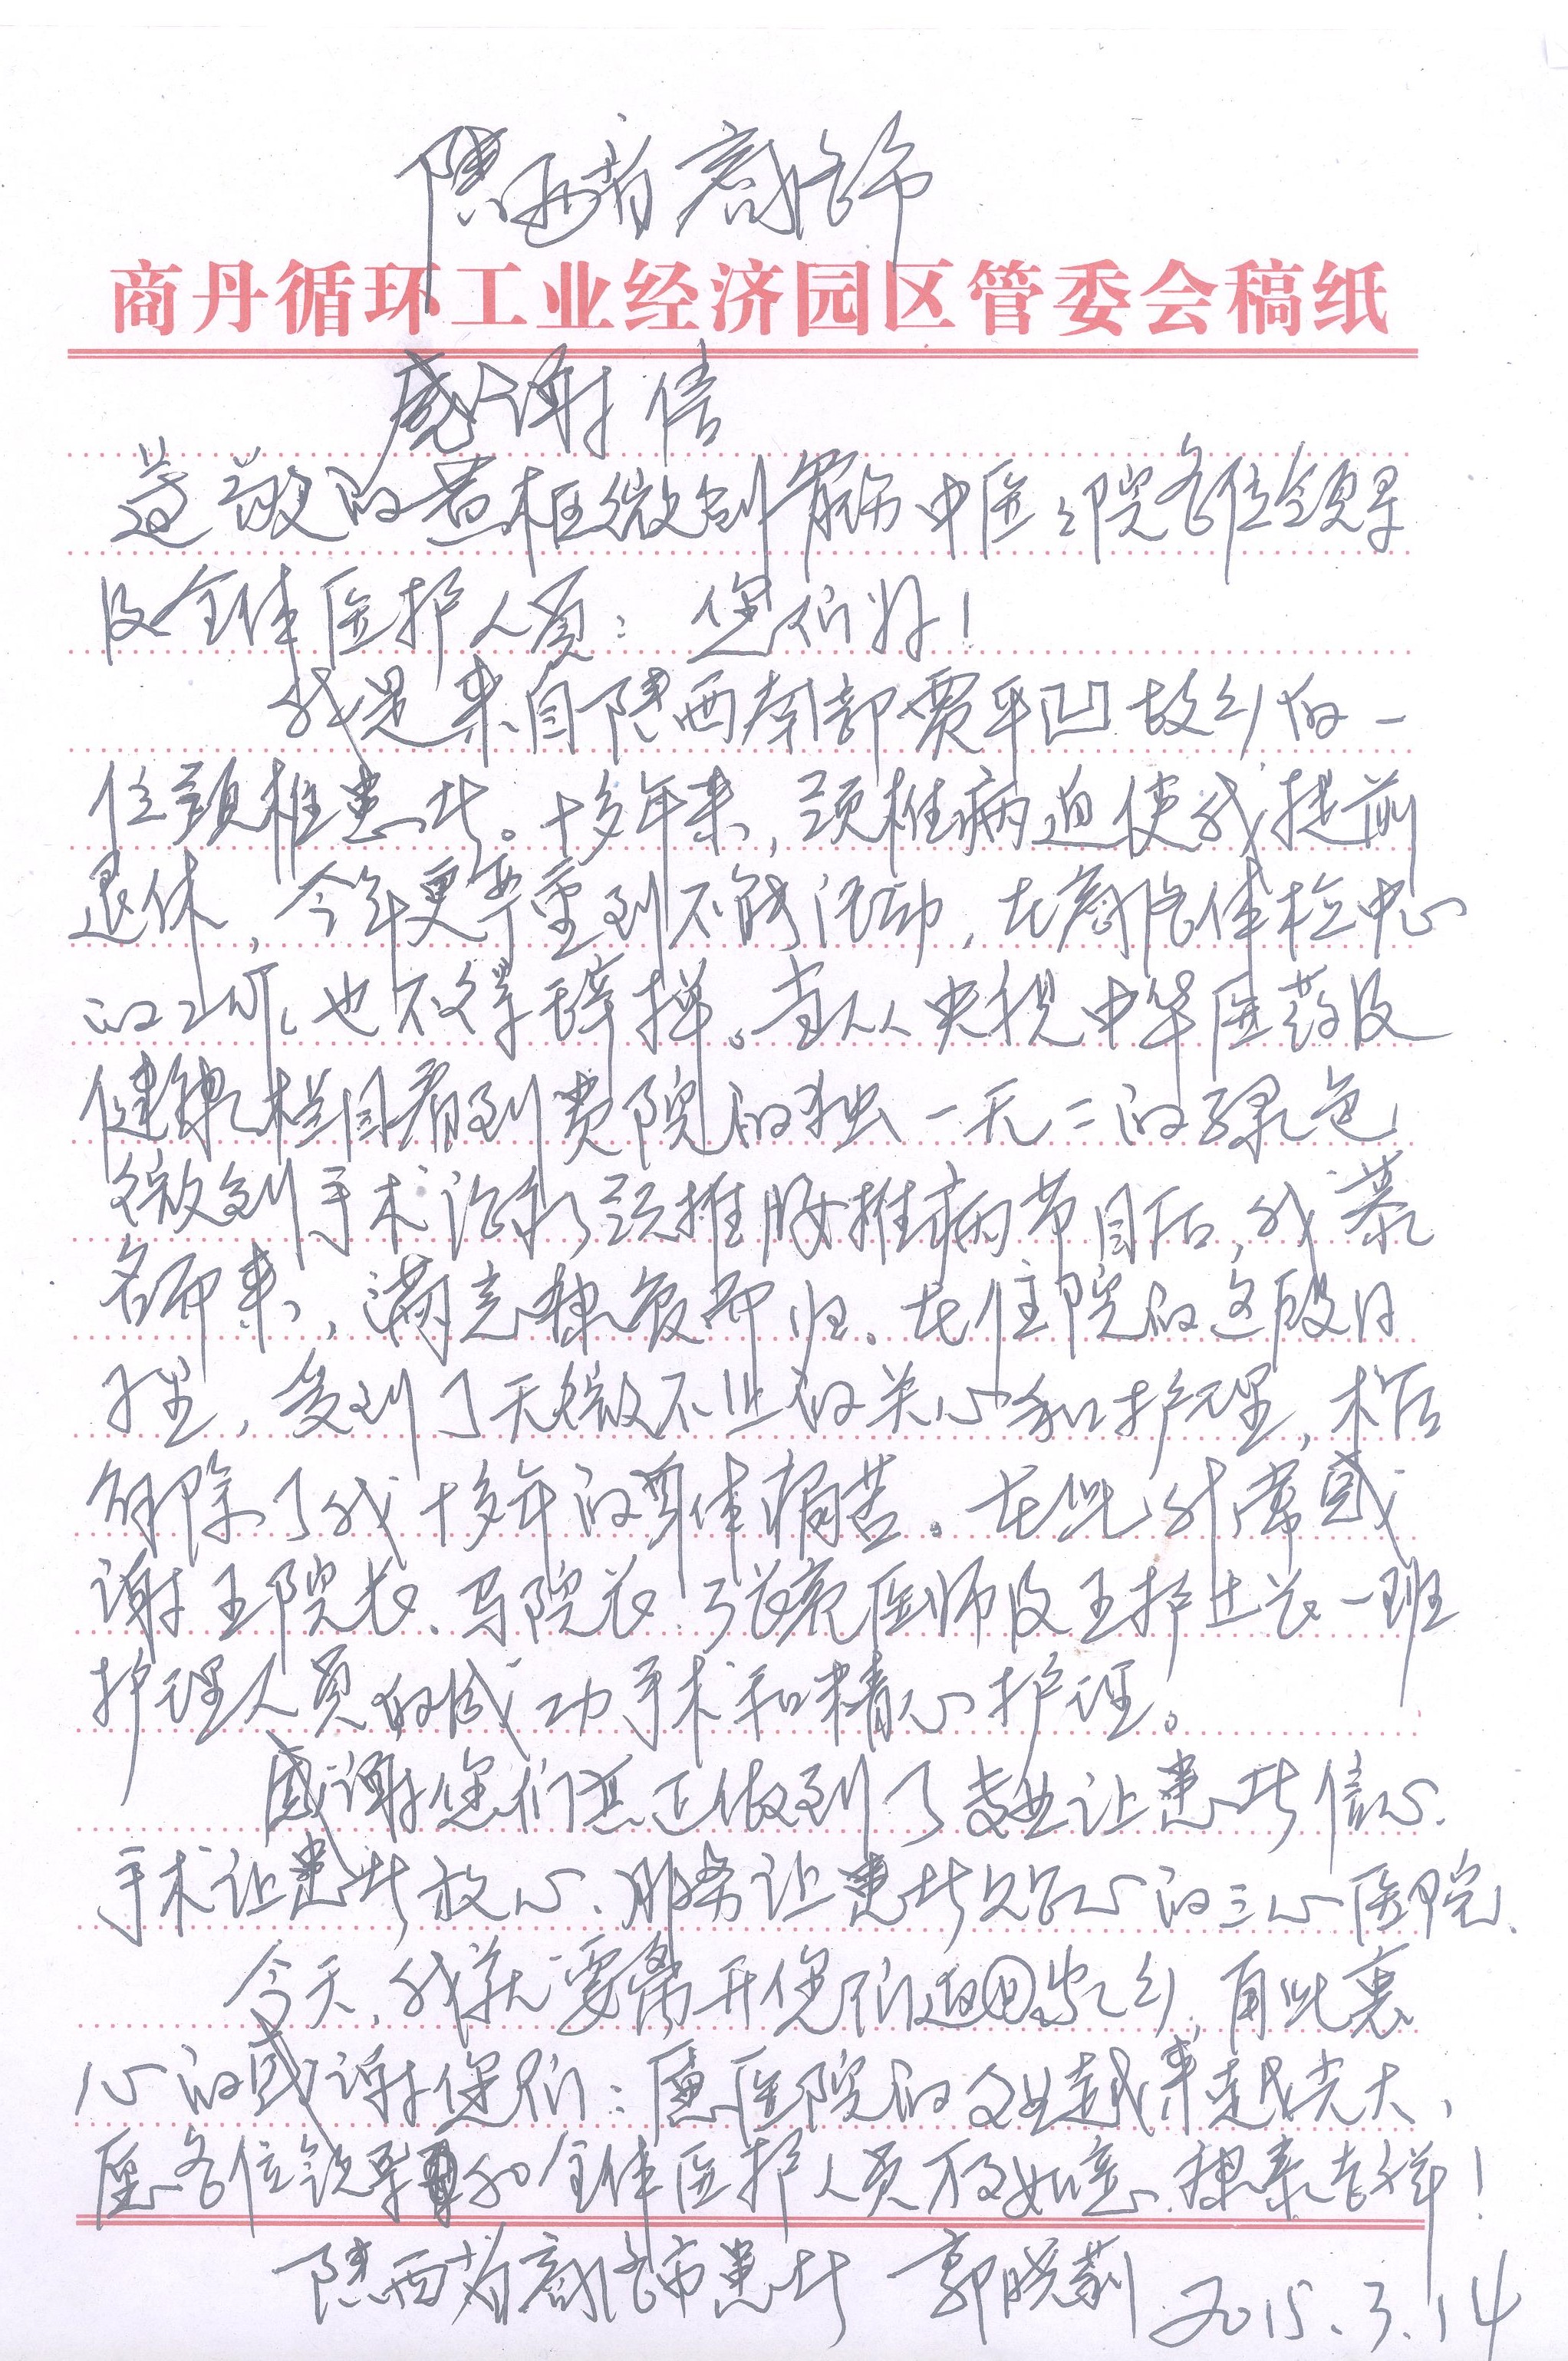 陕西省商洛市
商丹循环工业经济园区管委会稿纸
感谢信
尊敬的 微创 中医医院各位领导
及全体医护人员：您们好！
我是来自陕西南部贾平凹故乡的一
位颈椎患者。十多年来，颈椎病迫使我提前
退休，今年更严重到不能活动，在商洛体检中心
的工作也不得辞掉。当从央视中华医药及
健康栏目看到贵院的独一无二的绿色
微创手术治疗颈椎腰椎病节目后，我慕
名而来，满意康复而归。在住院的这段日
子里，受到了无微不至的关心和护理，术后
解除了我十多年的身体痛苦。在此非常感
谢王院长、马院长、张亮医师及王护士长一班
护理人员的成功手术和精心护理。
感谢您们真正做到了 让患者信心、
手术让患者放心、服务让患者 心的三心医院。
今天，我就要离开您们返回家乡，再此衷
心的感谢您们：愿医院的 业越来越光大，
愿各位领导和全体医护人员万事如意、健康吉祥！
陕西省商洛市患者 郭晓莉 2015.3.14